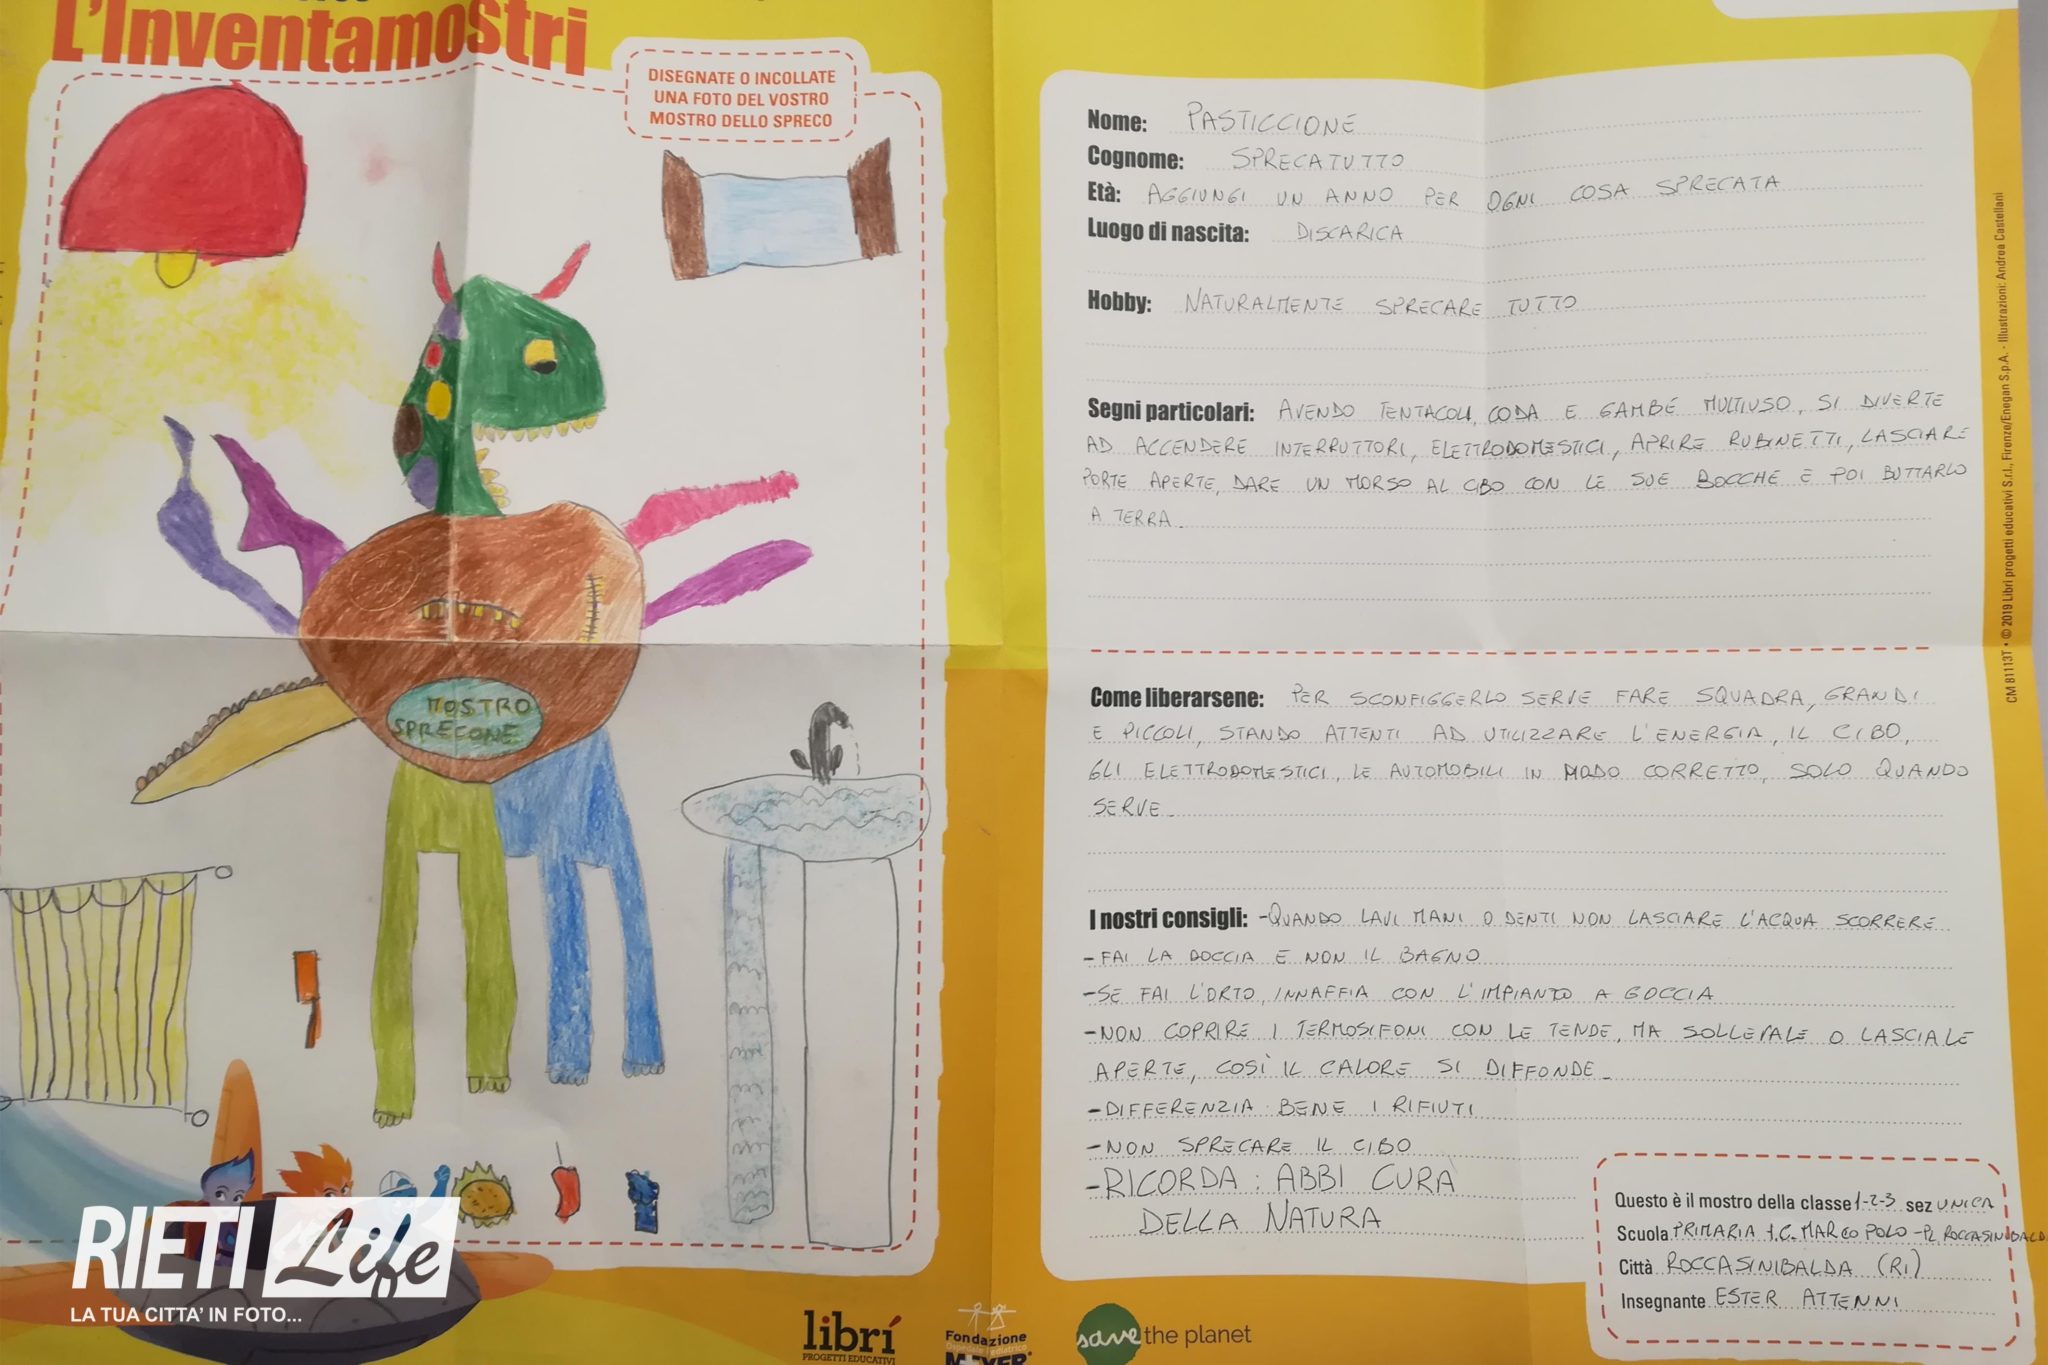 L'Inventamostri
DISEGNATE O INCOLLATE
UNA FOTO DEL VOSTRO
MOSTRO DELLO SPRECO
MOSTRO
SPRECONE
Nome: PASTICCIONE
Cognome: SPRECATUTTO
Età: AGGIUNGI UN ANNO PER OGNI COSA SPRECATA
Luogo di nascita: DISCARICA
Hobby: NATURALMENTE SPRECARE TUTTO
Segni particolari: AVENDO TENTACOLI, CODA E GAMBE MULTIUSO, SI DIVERTE
AD ACCENDERE INTERRUTTORI, ELETTRODOMESTICI, APRIRE RUBINETTI, LASCIARE
PORTE APERTE, DARE UN MORSO AL CIBO CON LE SUE BOCCHE E POI BUTTARLO
A TERRA.
Come liberarsene: PER SCONFIGGERLO SERVE FARE SQUADRA, GRANDI
E PICCOLI, STANDO ATTENTI AD UTILIZZARE L'ENERGIA, IL CIBO,
GLI ELETTRODOMESTICI, LE AUTOMOBILI IN MODO CORRETTO, SOLO QUANDO
SERVE.
I nostri consigli: -QUANDO LAVI MANI O DENTI NON LASCIARE L'ACQUA SCORRERE
-FAI LA DOCCIA E NON IL BAGNO
-SE FAI L'ORTO, INNAFFIA CON L'IMPIANTO A GOCCIA
-NON COPRIRE I TERMOSIFONI CON LE TENDE, MA SOLLEVALE O LASCIALE
APERTE, COSÌ IL CALORE SI DIFFONDE.
-DIFFERENZIA BENE I RIFIUTI
-NON SPRECARE IL CIBO
-RICORDA: ABBI CURA
DELLA NATURA
Questo è il mostro della classe 1-2-3 sez UNICA
Scuola PRIMARIA I.C. MARCO POLO - PL ROCCASINIBALDA
Città ROCCASINIBALDA (RI)
Insegnante ESTER ATTENNI
CM 81113T • © 2019 Librì progetti educativi S.r.l., Firenze/Enegan S.p.A. - Illustrazioni: Andrea Castellani
RIETI Life
LA TUA CITTA' IN FOTO...
librí
PROGETTI EDUCATIVI
Fondazione
Ospedale Pediatrico
MEYER
save the planet